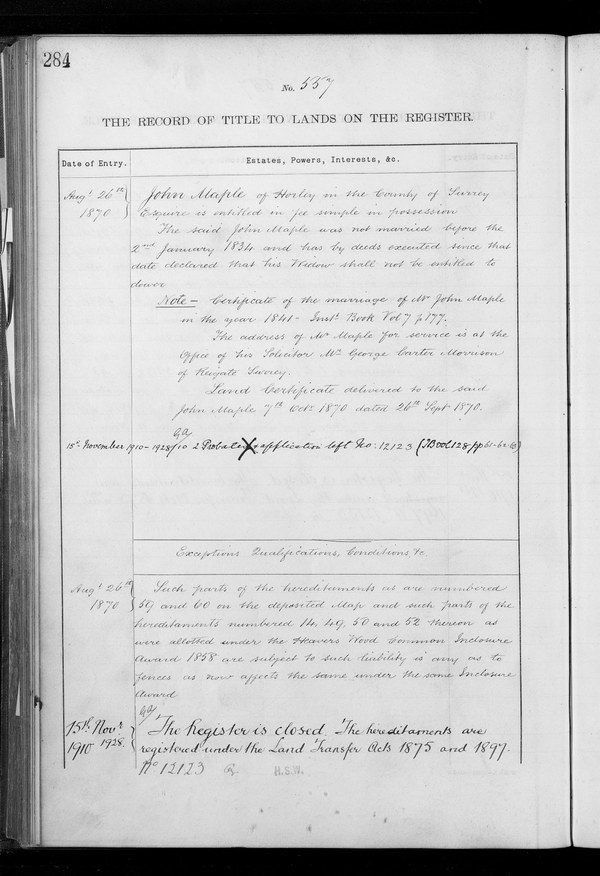 284
No. 557
THE RECORD OF TITLE TO LANDS ON THE REGISTER.
Date of Entry.
Estates, Powers, Interests, &c.
Augt 26th 1870
John Maple of Horley in the County of Surrey
Esquire is entitled in fee simple in possession
The said John Maple was not married before the
2nd January 1834 and has by deeds executed since that
date declared that his Widow shall not be entitled to
dower
Note – Certificate of the marriage of Mr John Maple
in the year 1841 – Inst. Book Vol 7 p 177.
The address of Mr Maple for service is at the
Office of his Solicitor Mr George Carter Morrison
of Reigate Surrey.
Land Certificate delivered to the said
John Maple 7th Octr 1870 dated 26th Sept 1870.
15th November 1910 – 1928/10 2 Probates application left No: 12123
Exceptions Qualifications, Conditions, &c.
Augt 26th 1870
Such parts of the hereditaments as are numbered
59 and 60 on the deposited Map and such parts of the
hereditaments numbered 14, 49, 50 and 52 thereon as
were allotted under the Heavers Wood Common Inclosure
Award 1858 are subject to such liability if any as to
fences as now affects the same under the same Inclosure
Award
15th Novr 1910 1928.
The Register is closed. The hereditaments are
registered under the Land Transfer Acts 1875 and 1897.
No 12123 H.S.W.